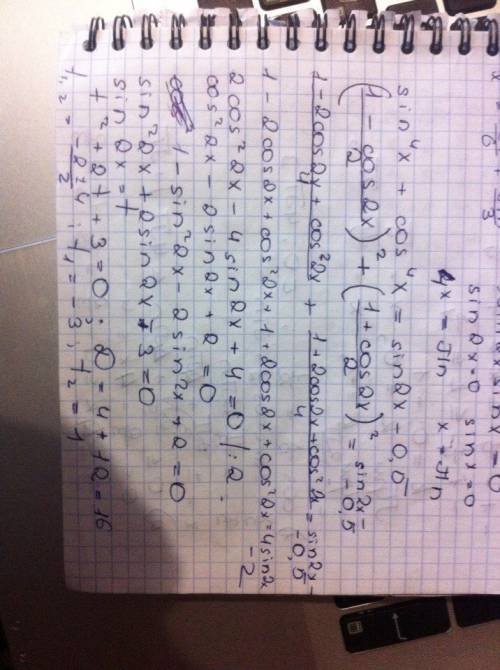 sin 2x = 0 sin x = 0
4x = πn x = πn
sin⁴x + cos⁴x = sin 2x - 0,5
((1 - cos 2x)/2)² + ((1 + cos 2x)/2)² = sin 2x - 0,5
(1 - 2cos 2x + cos² 2x)/4 + (1 + 2cos 2x + cos² 2x)/4 = sin 2x - 0,5
1 - 2cos 2x + cos² 2x + 1 + 2cos 2x + cos² 2x = 4 sin 2x - 2
2cos² 2x - 4 sin 2x + 4 = 0 / : 2
cos² 2x - 2 sin 2x + 2 = 0
1 - sin² 2x - 2 sin 2x + 2 = 0
sin² 2x + 2 sin 2x - 3 = 0
sin 2x = t
t² + 2t + 3 = 0; D = 4 + 12 = 16
t₁,₂ = (-2 ± 4)/2; t₁ = -3; t₂ = 1